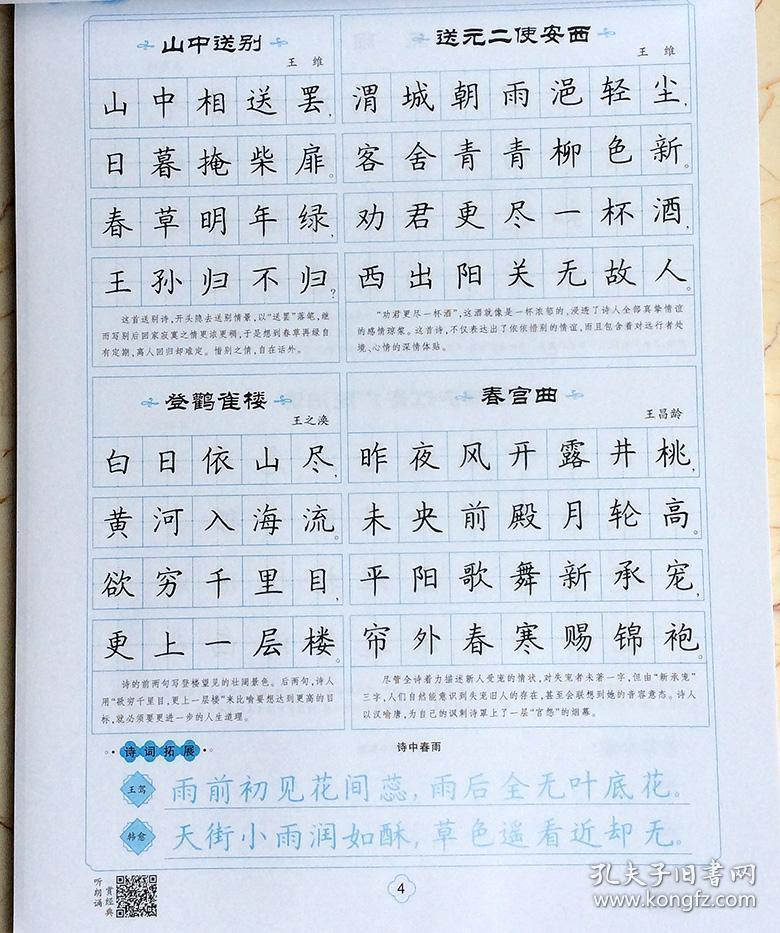 山中送别
王维
山中相送罢,
日暮掩柴扉。
春草明年绿,
王孙归不归?
这首送别诗,开头隐去送别情景,以“送罢”落笔,继
而写别后回家寂寞之情更浓更稠,于是想到春草再绿自
有定期,离人回归却难定。惜别之情,自在话外。
送元二使安西
王维
渭城朝雨浥轻尘,
客舍青青柳色新。
劝君更尽一杯酒,
西出阳关无故人。
“劝君更尽一杯酒”,这酒就像是一杯浓郁的,浸透了诗人全部真挚情谊
的感情琼浆。这首诗,不仅表达出了依依惜别的情谊,而且包含着对远行者处
境、心情的深情体贴。
登鹳雀楼
王之涣
白日依山尽,
黄河入海流。
欲穷千里目,
更上一层楼。
诗的前两句写登楼望见的壮阔景色。后两句,诗人
用“欲穷千里目,更上一层楼”来比喻要想达到更高的目
标,就必须要更进一步的人生道理。
春宫曲
王昌龄
昨夜风开露井桃,
未央前殿月轮高。
平阳歌舞新承宠,
帘外春寒赐锦袍。
尽管全诗着力描述新人受宠的情状,对失宠者未著一字,但由“新承宠”
三字,人们自然能意识到失宠旧人的存在,甚至会联想到她的音容意态。诗人
以汉喻唐,为自己的讽刺诗罩上了一层“宫怨”的烟幕。
诗词拓展
诗中春雨
王驾
雨前初见花间蕊,雨后全无叶底花。
韩愈
天街小雨润如酥,草色遥看近却无。
听朗诵
赏经典
4
孔夫子旧书网
www.kongfz.com